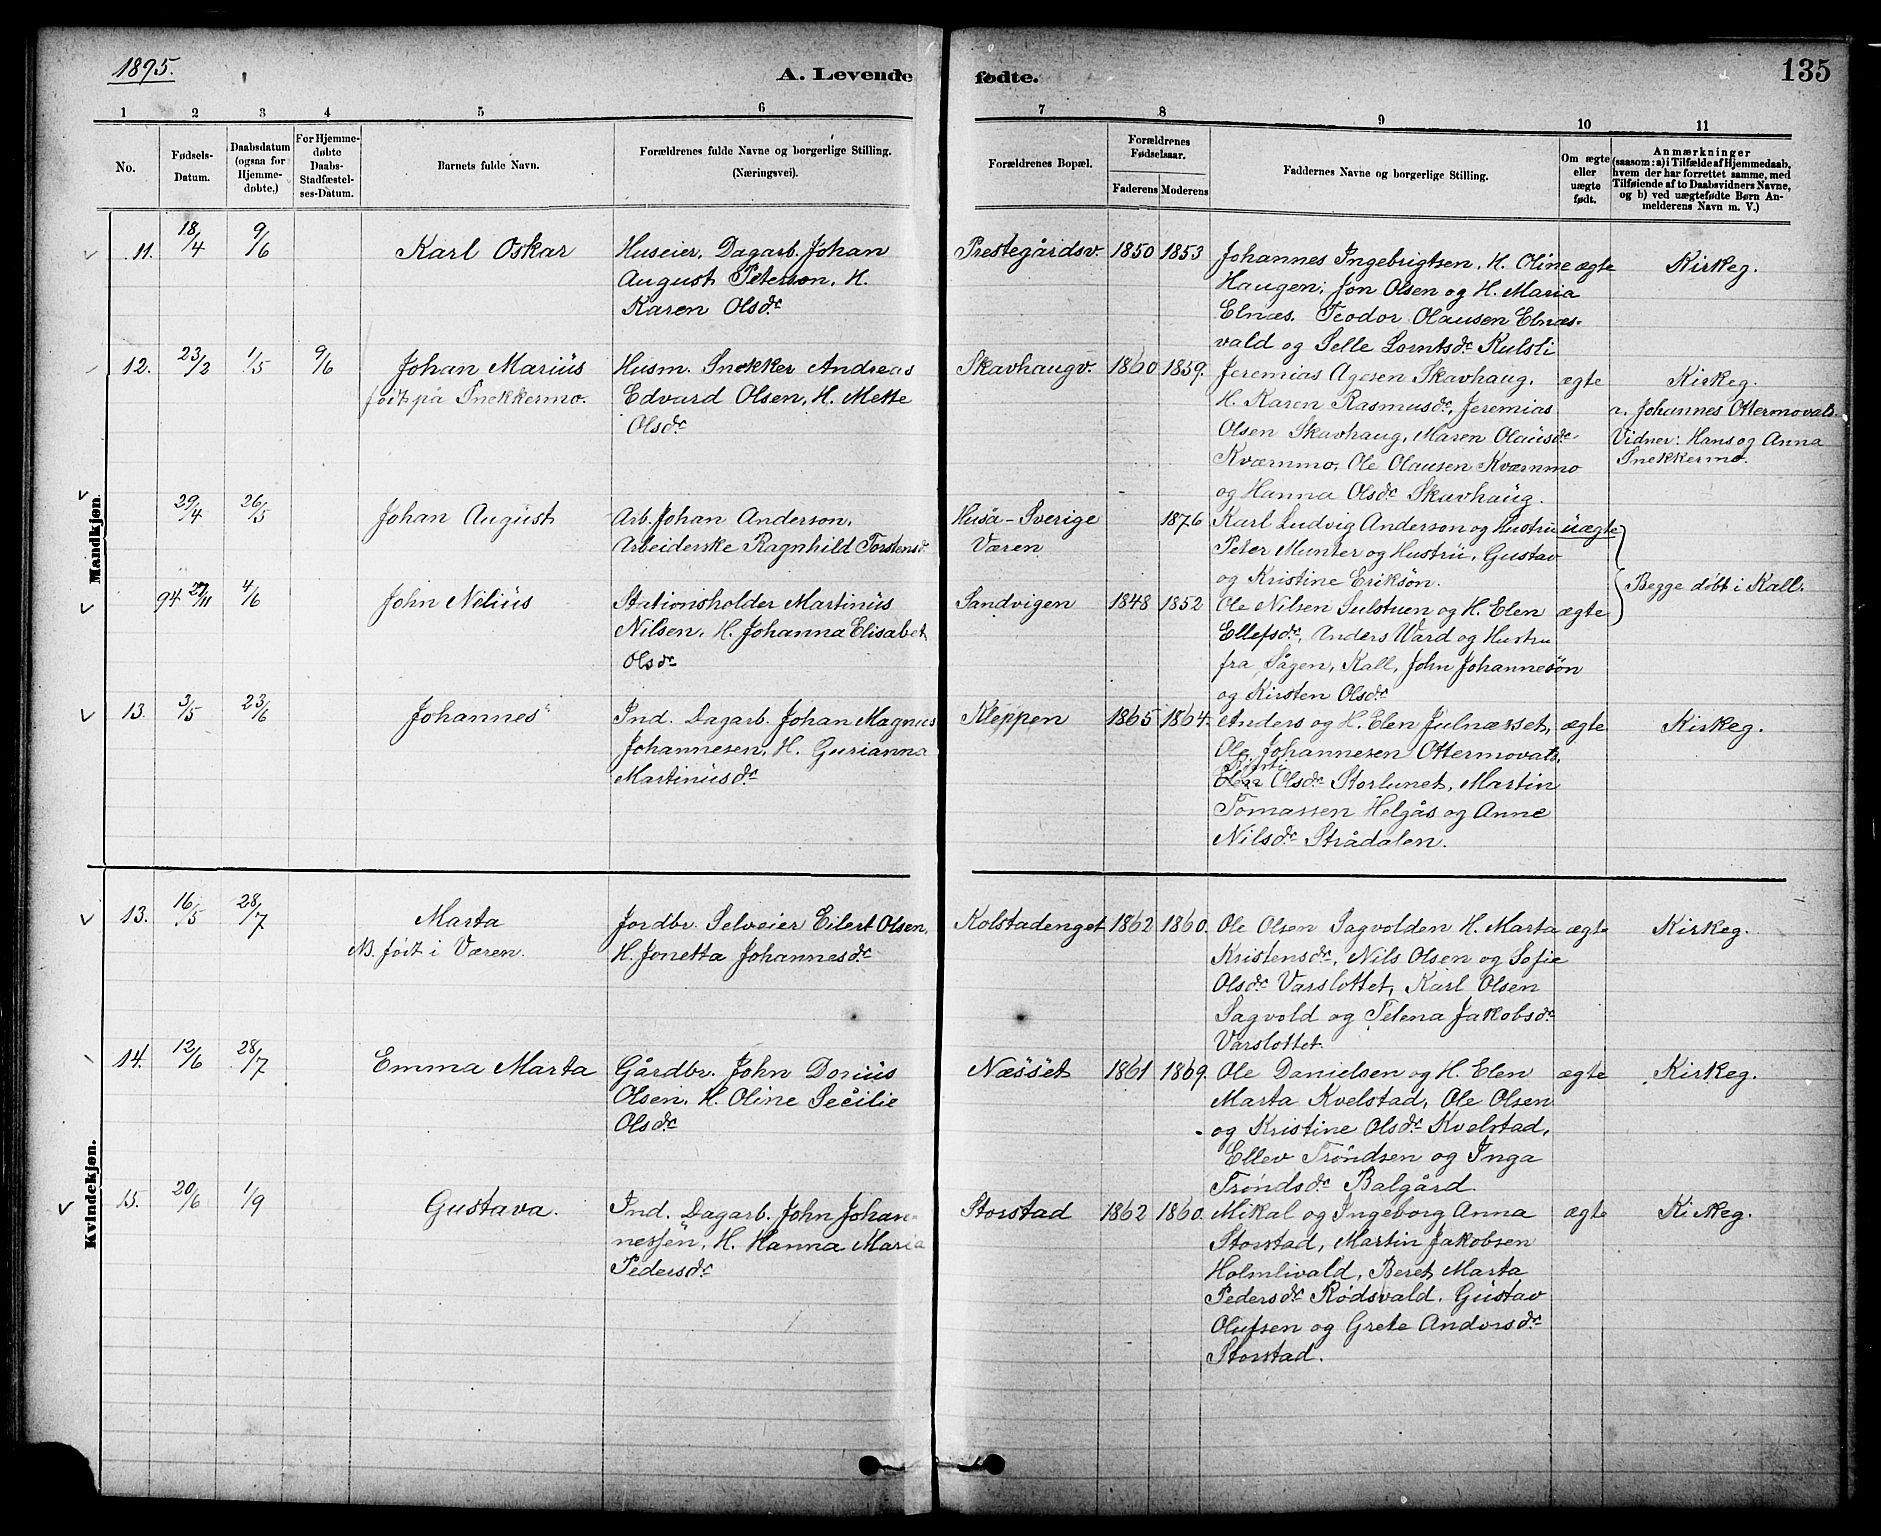 1895.
A. Levende fødte.
135
1 2 3 4 5 6 7 8 9 10 11
No.
Fødsels-
Datum.
Daabsdatum
(ogsaa for
Hjemme-
døbte.)
For Hjemme-
døbte
Daabs-
Stadfæstel-
ses-Datum.
Barnets fulde Navn.
Forældrenes fulde Navne og borgerlige Stilling.
(Næringsvei).
Forældrenes Bopæl.
Forældrenes
Fødselsaar.
Faderens Moderens
Faddernes Navne og borgerlige Stilling.
Om ægte
eller
uægte
født.
Anmærkninger
(saasom: a) i Tilfælde af Hjemmedaab,
hvem der har forrettet samme, med
Tilføiende af to Daabsvidners Navne,
og b) ved uægtefødte Børn An-
melderens Navn m. V.)
Mandkjøn.
11. 18/4 9/6 Karl Oskar
Huseier, Dagarb. Johan
August Peterson, H.
Karen Olsdr
Prestegårdsv. 1850 1853
Johannes Ingebrigtsen, H. Oline
Haugen, Jon Olsen og H. Maria
Elnæs. Teodor Olausen Elnæs-
vald og Selle Lorntsdr Kulsli
ægte
Kirkeg.
12. 23/2 1/5 9/6 Johan Marius
født på Snekkermo.
Husm. Snekker Andreas
Edvard Olsen, H. Mette
Olsdr
Skavhaugv. 1860 1859.
Jeremias Agesen Skavhaug.
H. Karen Rasmusdr, Jeremias
Olsen Skavhaug, Maren Olausdr
Kværnmo, Ole Olausen Kværnmo
og Hanna Olsdr Skavhaug.
ægte
Kirkeg.
a. Johannes Ottermovals.
Vidner: Hans og Anna
Snekkermo.
29/4 26/5 Johan August
Arb. Johan Anderson,
Arbeiderske Ragnhild Torstensd.
Huså - Sverige
Væren
1876
Karl Ludvig Anderson og Hustru
Peter Munter og Hustru, Gustav
og Kristine Erikson.
uægte
94 27/11 4/6 John Nilius
Stationsholder Martinus
Nilsen, H. Johanna Elisabet
Olsdr
Sandvigen 1848 1852
Ole Nilsen Sulstuen og H. Elen
Ellefsdr, Anders Vard og Hustru
fra Sågen, Kall, John Johannesön
og Kirsten Olsdr
ægte
Begge døbt i Kall.
13. 3/5 23/6 Johannes
Ind. Dagarb. Johan Magnus
Johannesen, H. Gurianna
Martinusdr
Kleppen 1865 1864.
Anders og H. Elen Julnæsset,
Ole Johannesen Ottermovals,
Kirsti
Olsdr Storlunet, Martin
Tomassen Helgås og Anne
Nilsdr Strådalen.
ægte
Kirkeg.
Kvindekjøn.
13. 16/5 28/7 Marta
NB. født i Væren.
Jordbr. Selveier Eilert Olsen,
H. Jonetta Johannesdr
Kolstadenget 1862 1860.
Ole Olsen Sagvolden H. Marta
Kristensdr, Nils Olsen og Sofie
Olsdr Varslottet, Karl Olsen
Sagvold og Telena Jakobsdr
Varslottet.
ægte
Kirkeg.
14. 12/6 28/7 Emma Marta
Gårdbr. John Dorius
Olsen, H. Oline Secilie
Olsdr
Næsset 1861 1869.
Ole Danielsen og H. Elen
Marta Kvelstad, Ole Olsen
og Kristine Olsdr Kvelstad,
Ellev Trøndsen og Inga
Trøndsdr Balgård
ægte
Kirkeg.
15. 20/6 1/9 Gustava.
Ind. Dagarb. John Johan-
nessen, H. Hanna Maria
Pedersdr
Storstad 1862 1860.
Mikal og Ingeborg Anna
Storstad, Martin Jakobsen
Holmlivald, Beret Marta
Pedersdr Rødsvald. Gustav
Olufsen og Grete Andorsdr
Storstad.
ægte
Kirkeg.